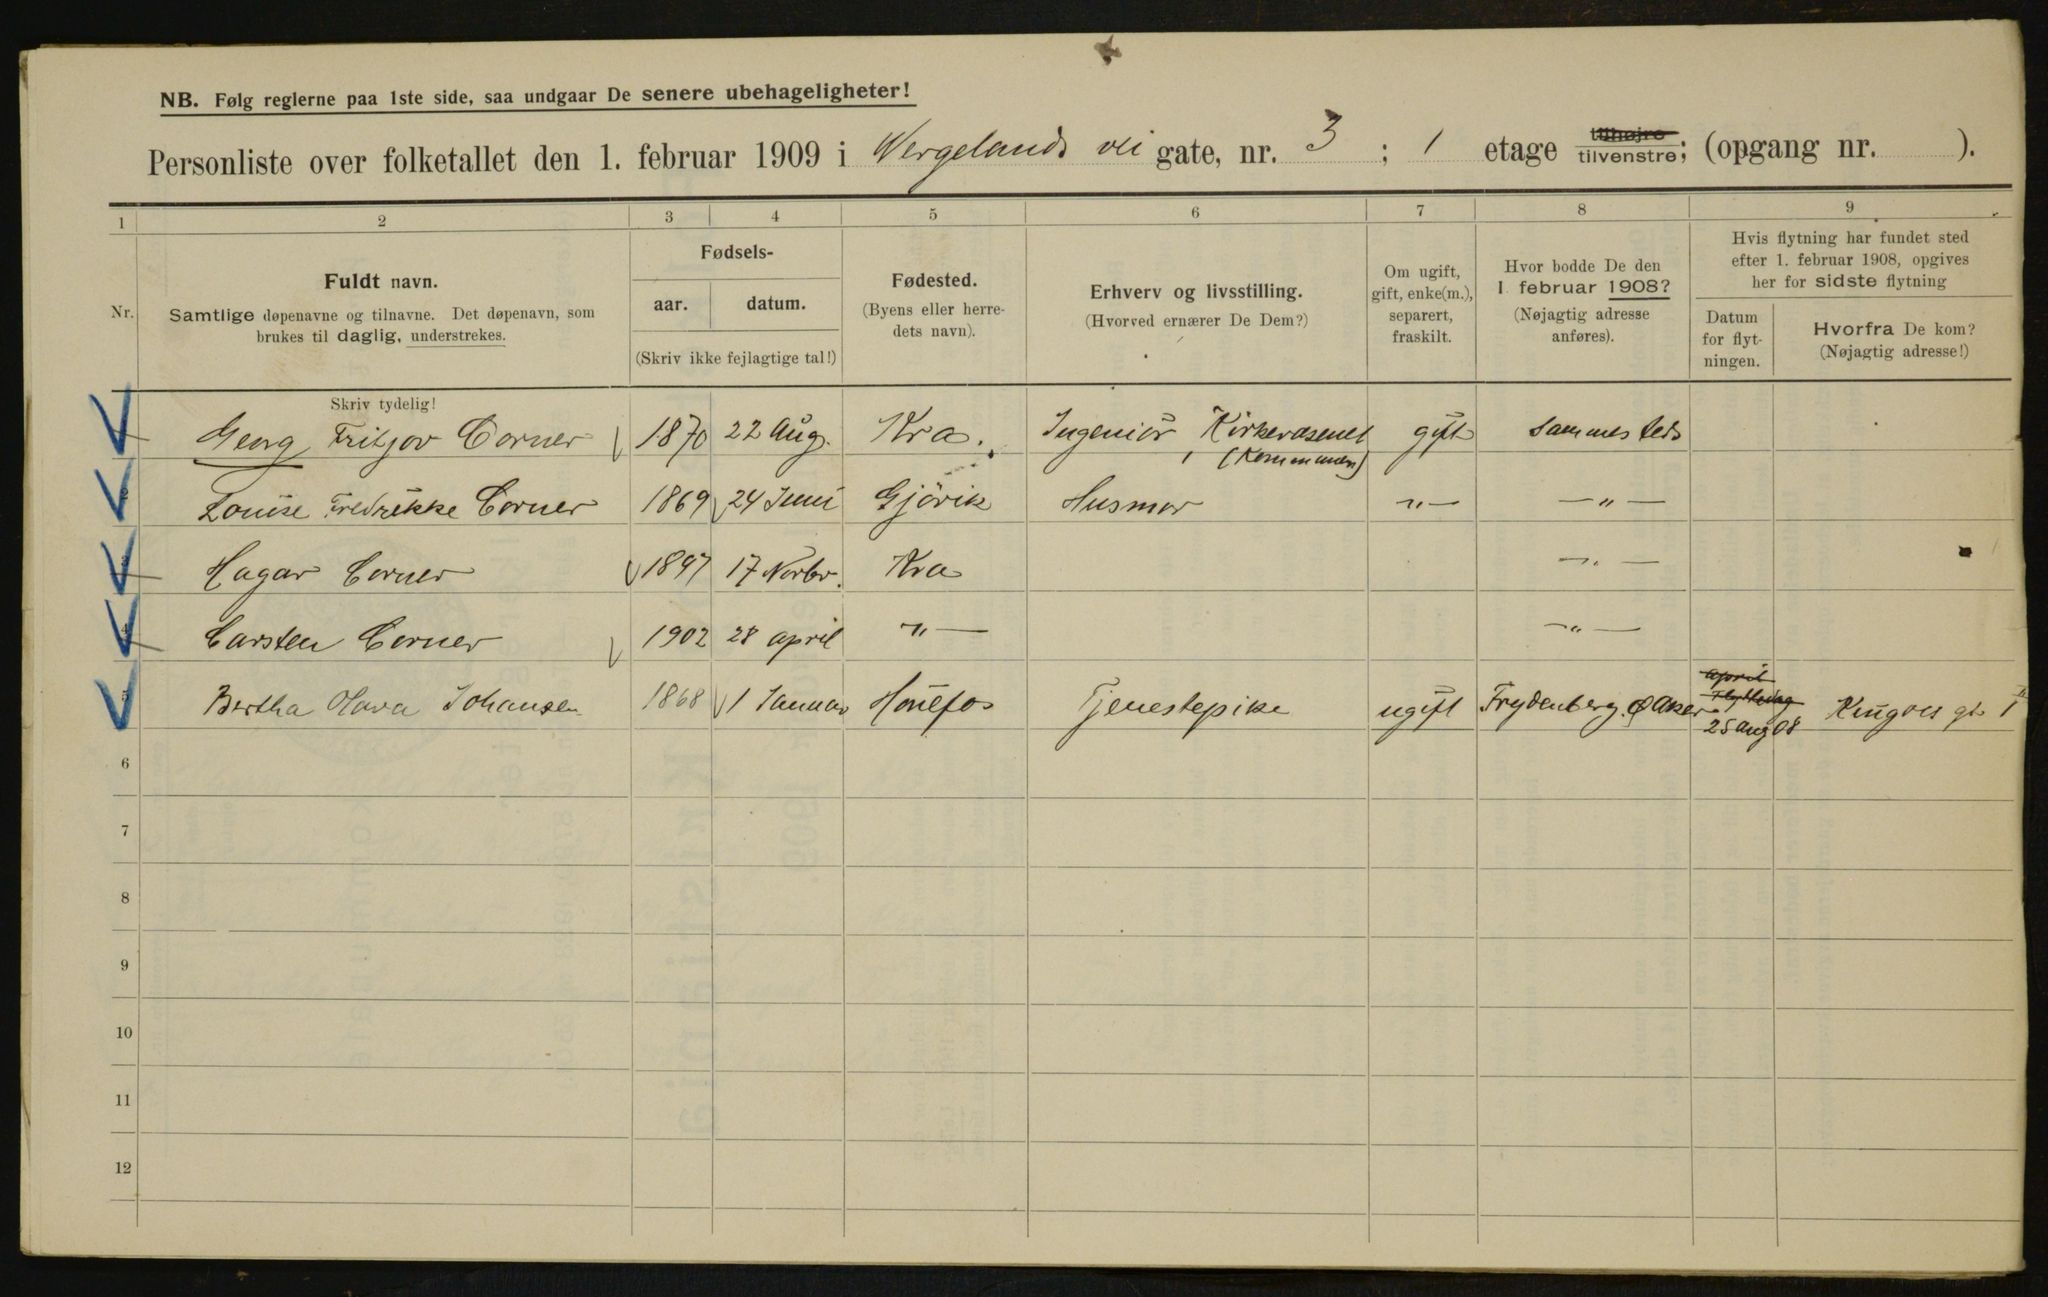 NB. Følg reglerne paa 1ste side, saa undgaar De senere ubehageligheter!
Personliste over folketallet den 1. februar 1909 i Wergelands vei gate, nr. 3 ; 1 etage tilhøjre tilvenstre; (opgang nr. ).
1 2 3 4 5 6 7 8 9
Nr.
Fuldt navn.
Samtlige døpenavne og tilnavne. Det døpenavn, som
brukes til daglig, understrekes.
Fødsels-
aar. datum.
(Skriv ikke fejlagtige tal!)
Fødested.
(Byens eller herre-
dets navn).
Erhverv og livsstilling.
(Hvorved ernærer De Dem?)
Om ugift,
gift, enke(m.),
separert,
fraskilt.
Hvor bodde De den
1. februar 1908?
(Nøjagtig adresse
anføres).
Hvis flytning har fundet sted
efter 1. februar 1908, opgives
her for sidste flytning
Datum
for flyt-
ningen.
Hvorfra De kom?
(Nøjagtig adresse!)
Skriv tydelig!
Georg Fritjov Corner 1870 22 Aug. Kra. Ingeniör, Kirkevæsenet gift sammesteds
(Kommunen)
2 Louise Fredrikke Corner 1869 24 Juni Gjörik Husmor —"— —"—
3 Hagar Corner 1897 17 Novbr. Kra —"—
4 Carsten Corner 1902 28 april —"— —"—
april
Flyttedag
5 Bertha Olava Johansen 1868 1 Januar Hönefos Tjenestepike ugift Frydenberg Ø Aker 25 Aug 08 Kingos gt 1 II
6
7
8
9
10
11
12